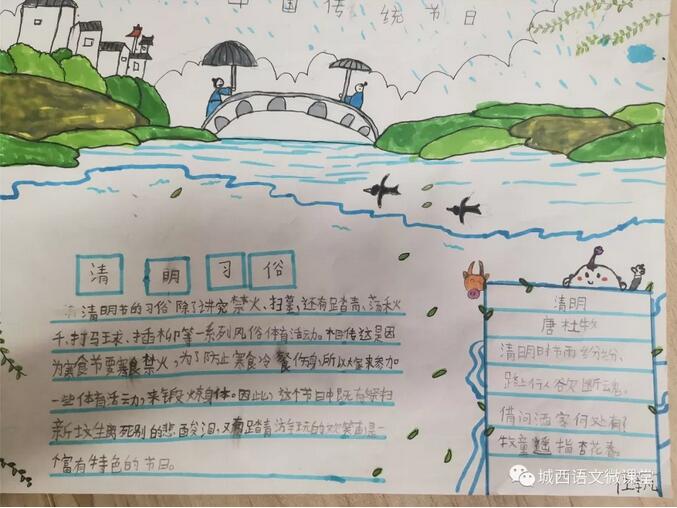 中国传统节日
清明习俗
清明节的习俗除了讲究禁火、扫墓,还有踏青、荡秋
千、打马球、插柳等一系列风俗体育活动。相传这是因
为寒食节要寒食禁火,为了防止寒食冷餐伤身,所以大家来参加
一些体育活动,来锻炼身体。因此,这个节日中既有祭扫
新坟生离死别的悲酸泪,又有踏青游玩的欢笑声是一
富有特色的节日。
清明
唐杜牧
清明时节雨纷纷、
路上行人欲断魂。
借问酒家何处有?
牧童遥指杏花春。
城西语文微课堂